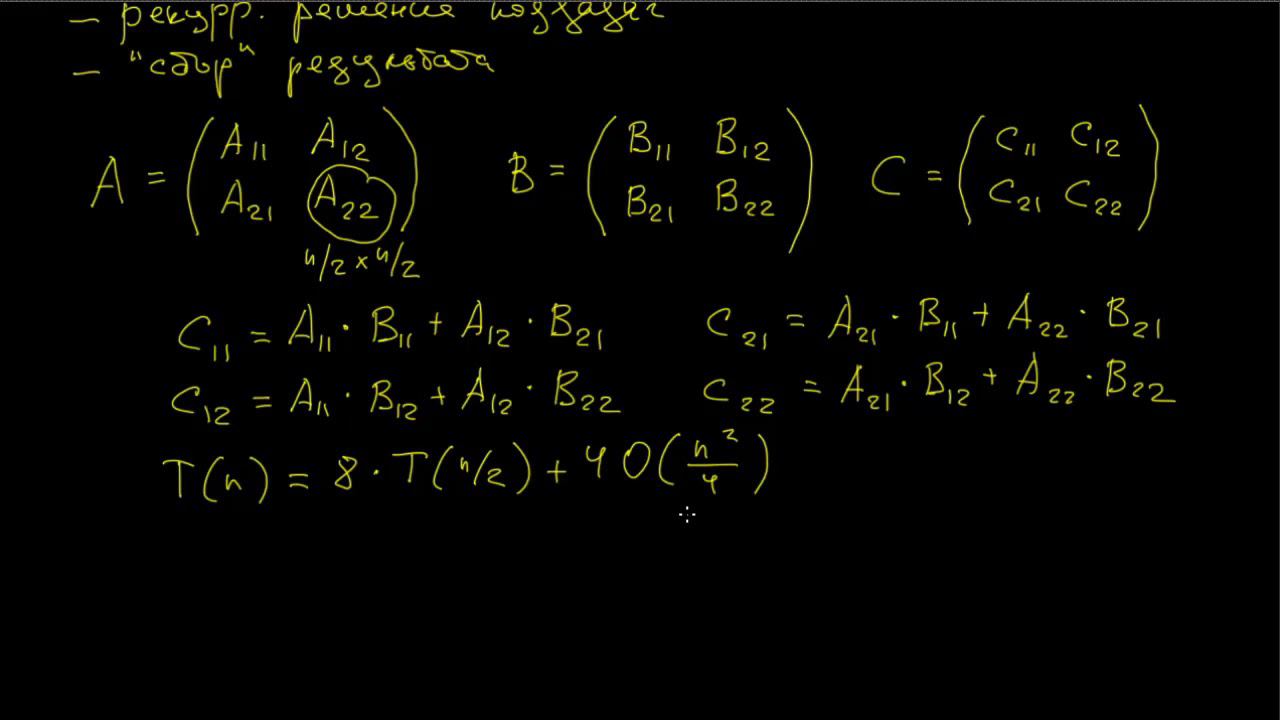 – рекурр. решение подзадач
– "сбор" результата
A = ( A11 A12 B = ( B11 B12 ) C = ( C11 C12 )
A21 A22 ) B21 B22 C21 C22
n/2 × n/2
C11 = A11 · B11 + A12 · B21 C21 = A21 · B11 + A22 · B21
C12 = A11 · B12 + A12 · B22 C22 = A21 · B12 + A22 · B22
T(n) = 8 · T(n/2) + 4 O(n²/4)